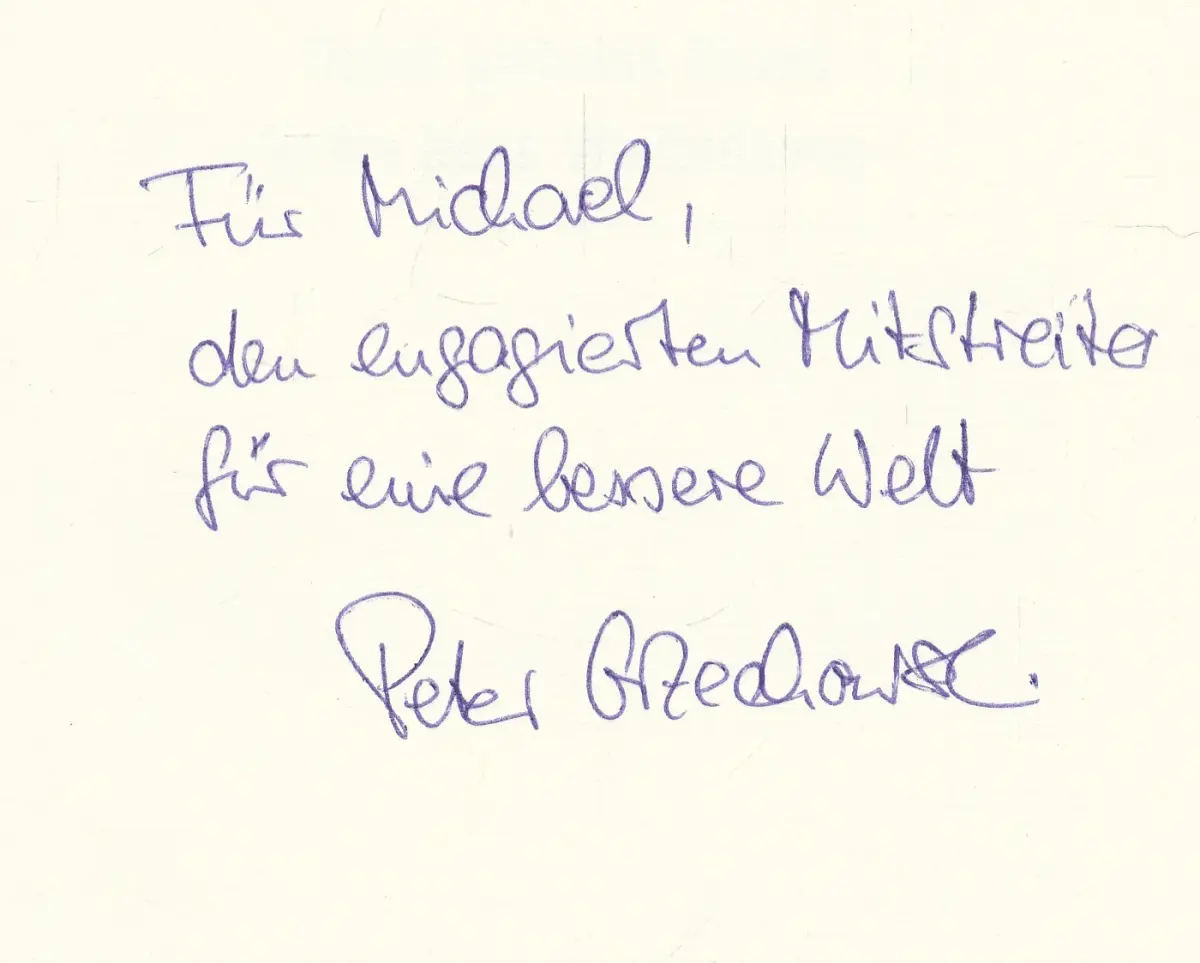 Für Michael,
den engagierten Mitstreiter
für eine bessere Welt
Peter Grzechowski